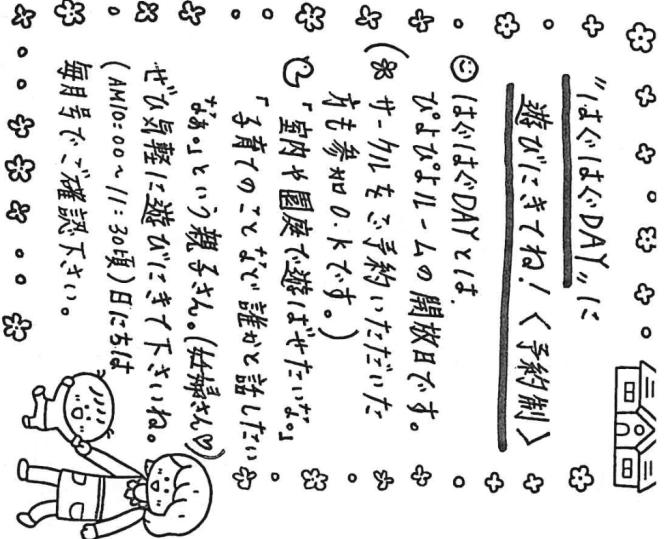 "はぐはぐDAY"に
遊びにきてね!<予約制>
はぐはぐDAYとは、
ぴよぴよルームの開放日です。
(※サークルをご予約いただいた
方も参加O.Kです。)
「室内や園庭で遊ばせたいな。」
「子育てのことなど誰かと話したい
なぁ。」という親子さん。(妊婦さん♡)
ぜひ気軽に遊びにきて下さいね。
(AM10:00〜11:30頃)日にちは
毎月号でご確認下さい。